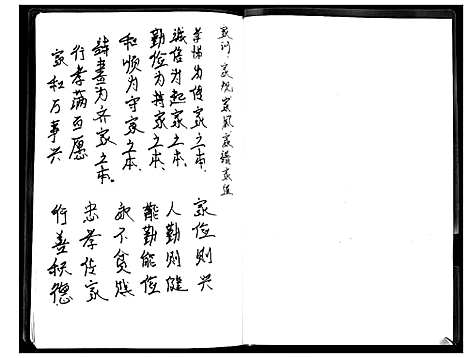 家训 家规家风家谱家组
孝悌为传家之本.
诚信为起家之本.
勤俭为持家之本.
和顺为守家之本.
诗书为齐家之本.
行孝满百愿
家和万事兴
家俭则兴
人勤则健
能勤能俭
永不贫贱
忠孝传家
行善积德